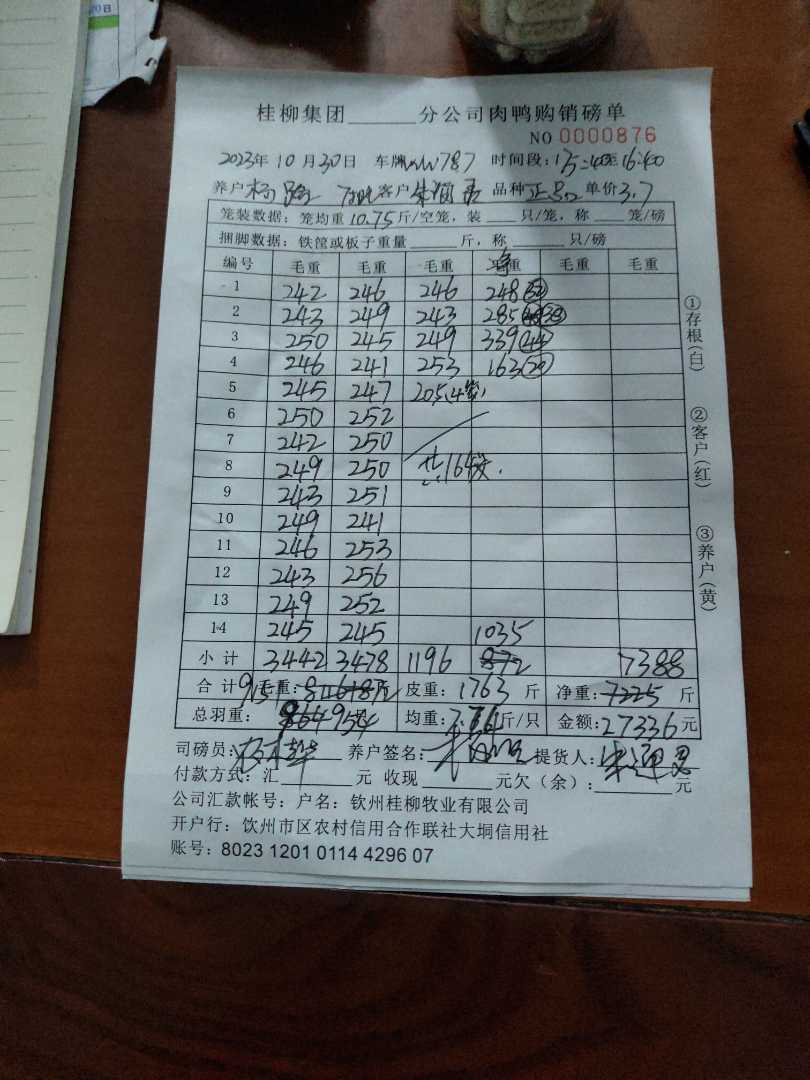 20日
桂柳集团______分公司肉鸭购销磅单
NO 0000876
2023年10月30日 车牌 787 时间段:15:40至16:40
养户 杨 客户 朱 品种 正品 单价3.7
笼装数据:笼均重10.75斤/空笼,装____只/笼,称____笼/磅
捆脚数据:铁筐或板子重量______斤,称______只/磅
编号 毛重 毛重 毛重 净重 毛重 毛重
1 242 246 246 248
2 243 249 243 285 38
3 250 245 249 339 44
4 246 241 253 163
5 245 247 205(4笼)
6 250 252
7 242 250
8 249 250 共164笼.
9 243 251
10 249 241
11 246 253
12 243 256
13 249 252
14 245 245 1035
小计 3442 3478 1196 872 7388
合计 毛重:9151 皮重:1763斤 净重:7225斤
总羽重: 954 均重:7.74斤/只 金额:27336元
司磅员: 养户签名: 提货人:
付款方式:汇______元 收现______元欠(余):______元
公司汇款帐号:户名:钦州桂柳牧业有限公司
开户行:饮州市区农村信用合作联社大垌信用社
账号:8023 1201 0114 4296 07
①存根(白)
②客户(红)
③养户(黄)